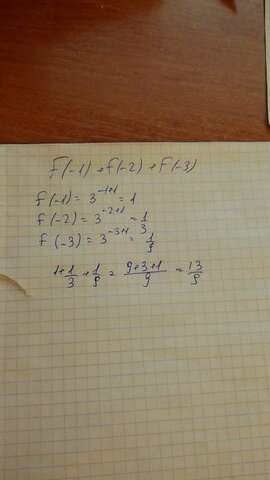 F(-1) + f(-2) + F(-3)
f(-1) = 3^{-1+1} = 1
f(-2) = 3^{-2+1} = \frac{1}{3}
f(-3) = 3^{-3+1} = \frac{1}{9}
1 + \frac{1}{3} + \frac{1}{9} = \frac{9+3+1}{9} = \frac{13}{9}